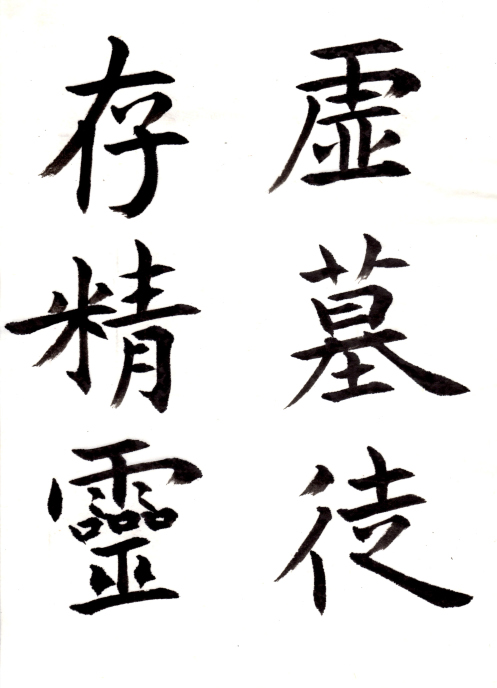 虛墓徒
存精靈